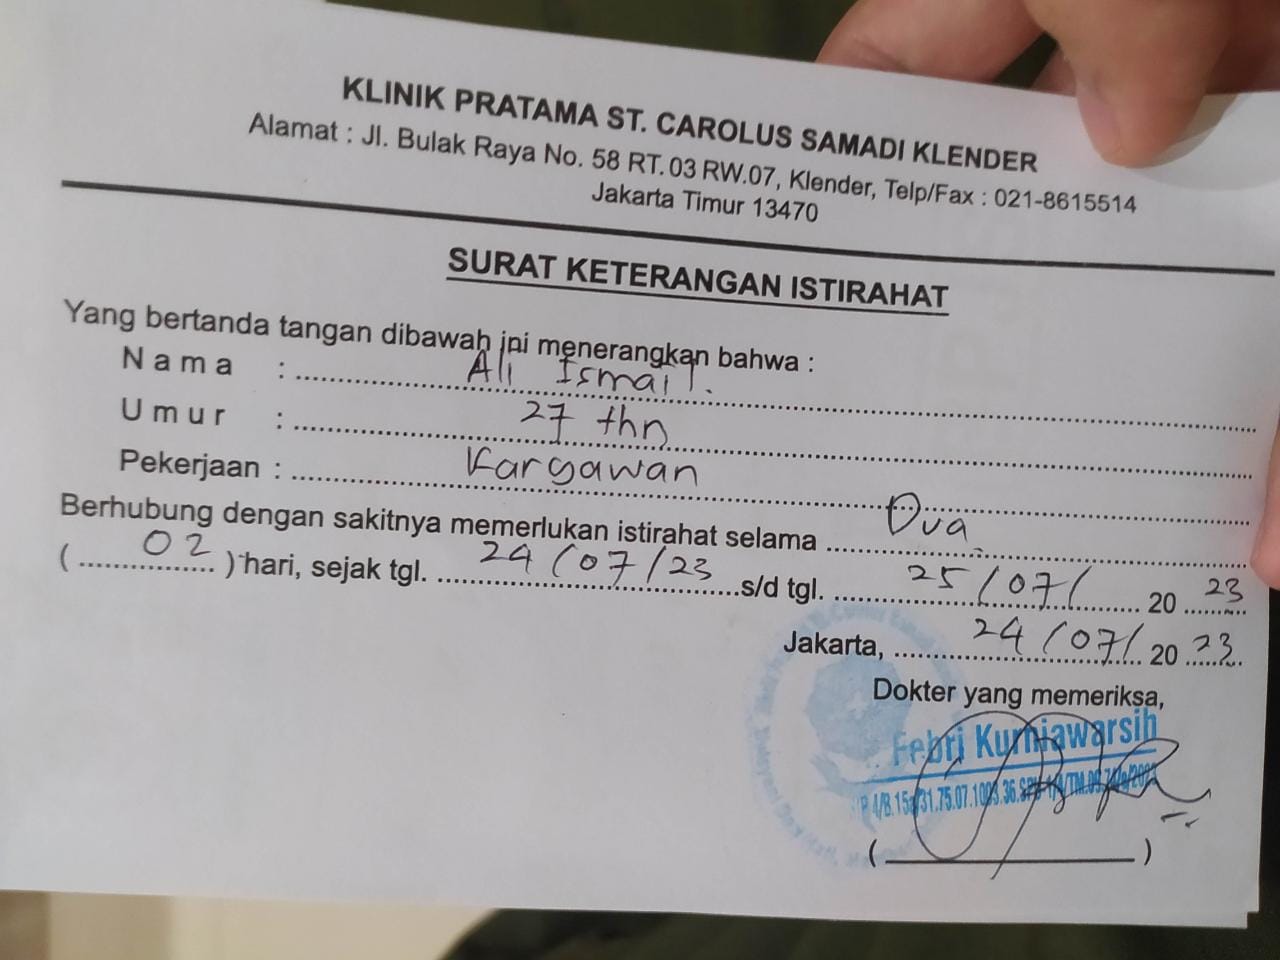 KLINIK PRATAMA ST. CAROLUS SAMADI KLENDER
Alamat : Jl. Bulak Raya No. 58 RT. 03 RW.07, Klender, Telp/Fax : 021-8615514
Jakarta Timur 13470
SURAT KETERANGAN ISTIRAHAT
Yang bertanda tangan dibawah ini menerangkan bahwa :
Nama : Ali Ismail.
Umur : 27 thn
Pekerjaan : Karyawan
Berhubung dengan sakitnya memerlukan istirahat selama Dua
( 02 ) hari, sejak tgl. 24/07/23 s/d tgl. 25/07/ 20 23
Jakarta, 24/07/ 20 23
Dokter yang memeriksa,
Febri Kurniawarsih